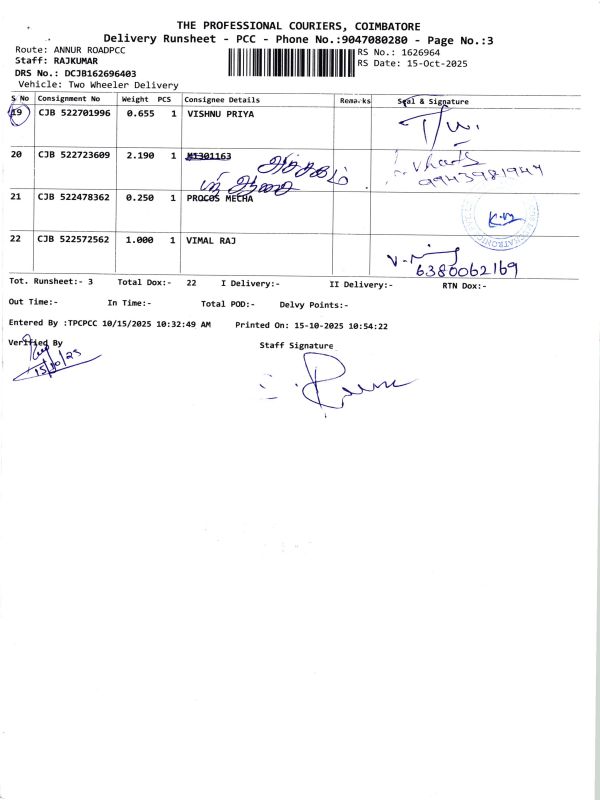 THE PROFESSIONAL COURIERS, COIMBATORE
Delivery Runsheet - PCC - Phone No.:9047080280 - Page No.:3
Route: ANNUR ROADPCC
RS No.: 1626964
Staff: RAJKUMAR
RS Date: 15-Oct-2025
DRS No.: DCJB162696403
Vehicle: Two Wheeler Delivery
S No Consignment No Weight PCS Consignee Details Remarks Seal & Signature
19 CJB 522701996 0.655 1 VISHNU PRIYA
20 CJB 522723609 2.190 1 MT301163
9943981944
21 CJB 522478362 0.250 1 PROCOS MECHA
22 CJB 522572562 1.000 1 VIMAL RAJ
6380062169
Tot. Runsheet:- 3 Total Dox:- 22 I Delivery:- II Delivery:- RTN Dox:-
Out Time:- In Time:- Total POD:- Delvy Points:-
Entered By :TPCPCC 10/15/2025 10:32:49 AM Printed On: 15-10-2025 10:54:22
Verified By Staff Signature
15/10/25